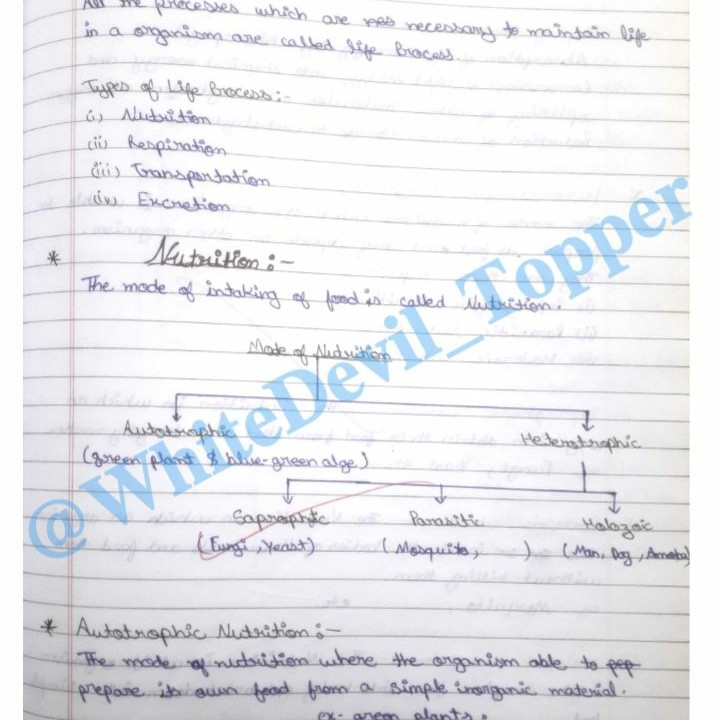 All the processes which are nes necessary to maintain life
in a organism are called life Process.
Types of Life Process:-
(i) Nutrition
(ii) Respiration
(iii) Transportation
(iv) Excretion
* Nutrition:-
The mode of intaking of food is called Nutrition.
Mode of Nutrition
Autotrophic Heterotrophic
(green plant & blue-green alge)
Saprophtic Parasitic Holozoic
(Fungi, Yeast) (Mosquito, ) (Man, Dog, Amoeba)
* Autotrophic Nutrition:-
The mode of nutrition where the organism able to pep
prepare its own food from a simple inorganic material.
ex- green plants.
@WhiteDevil_Topper